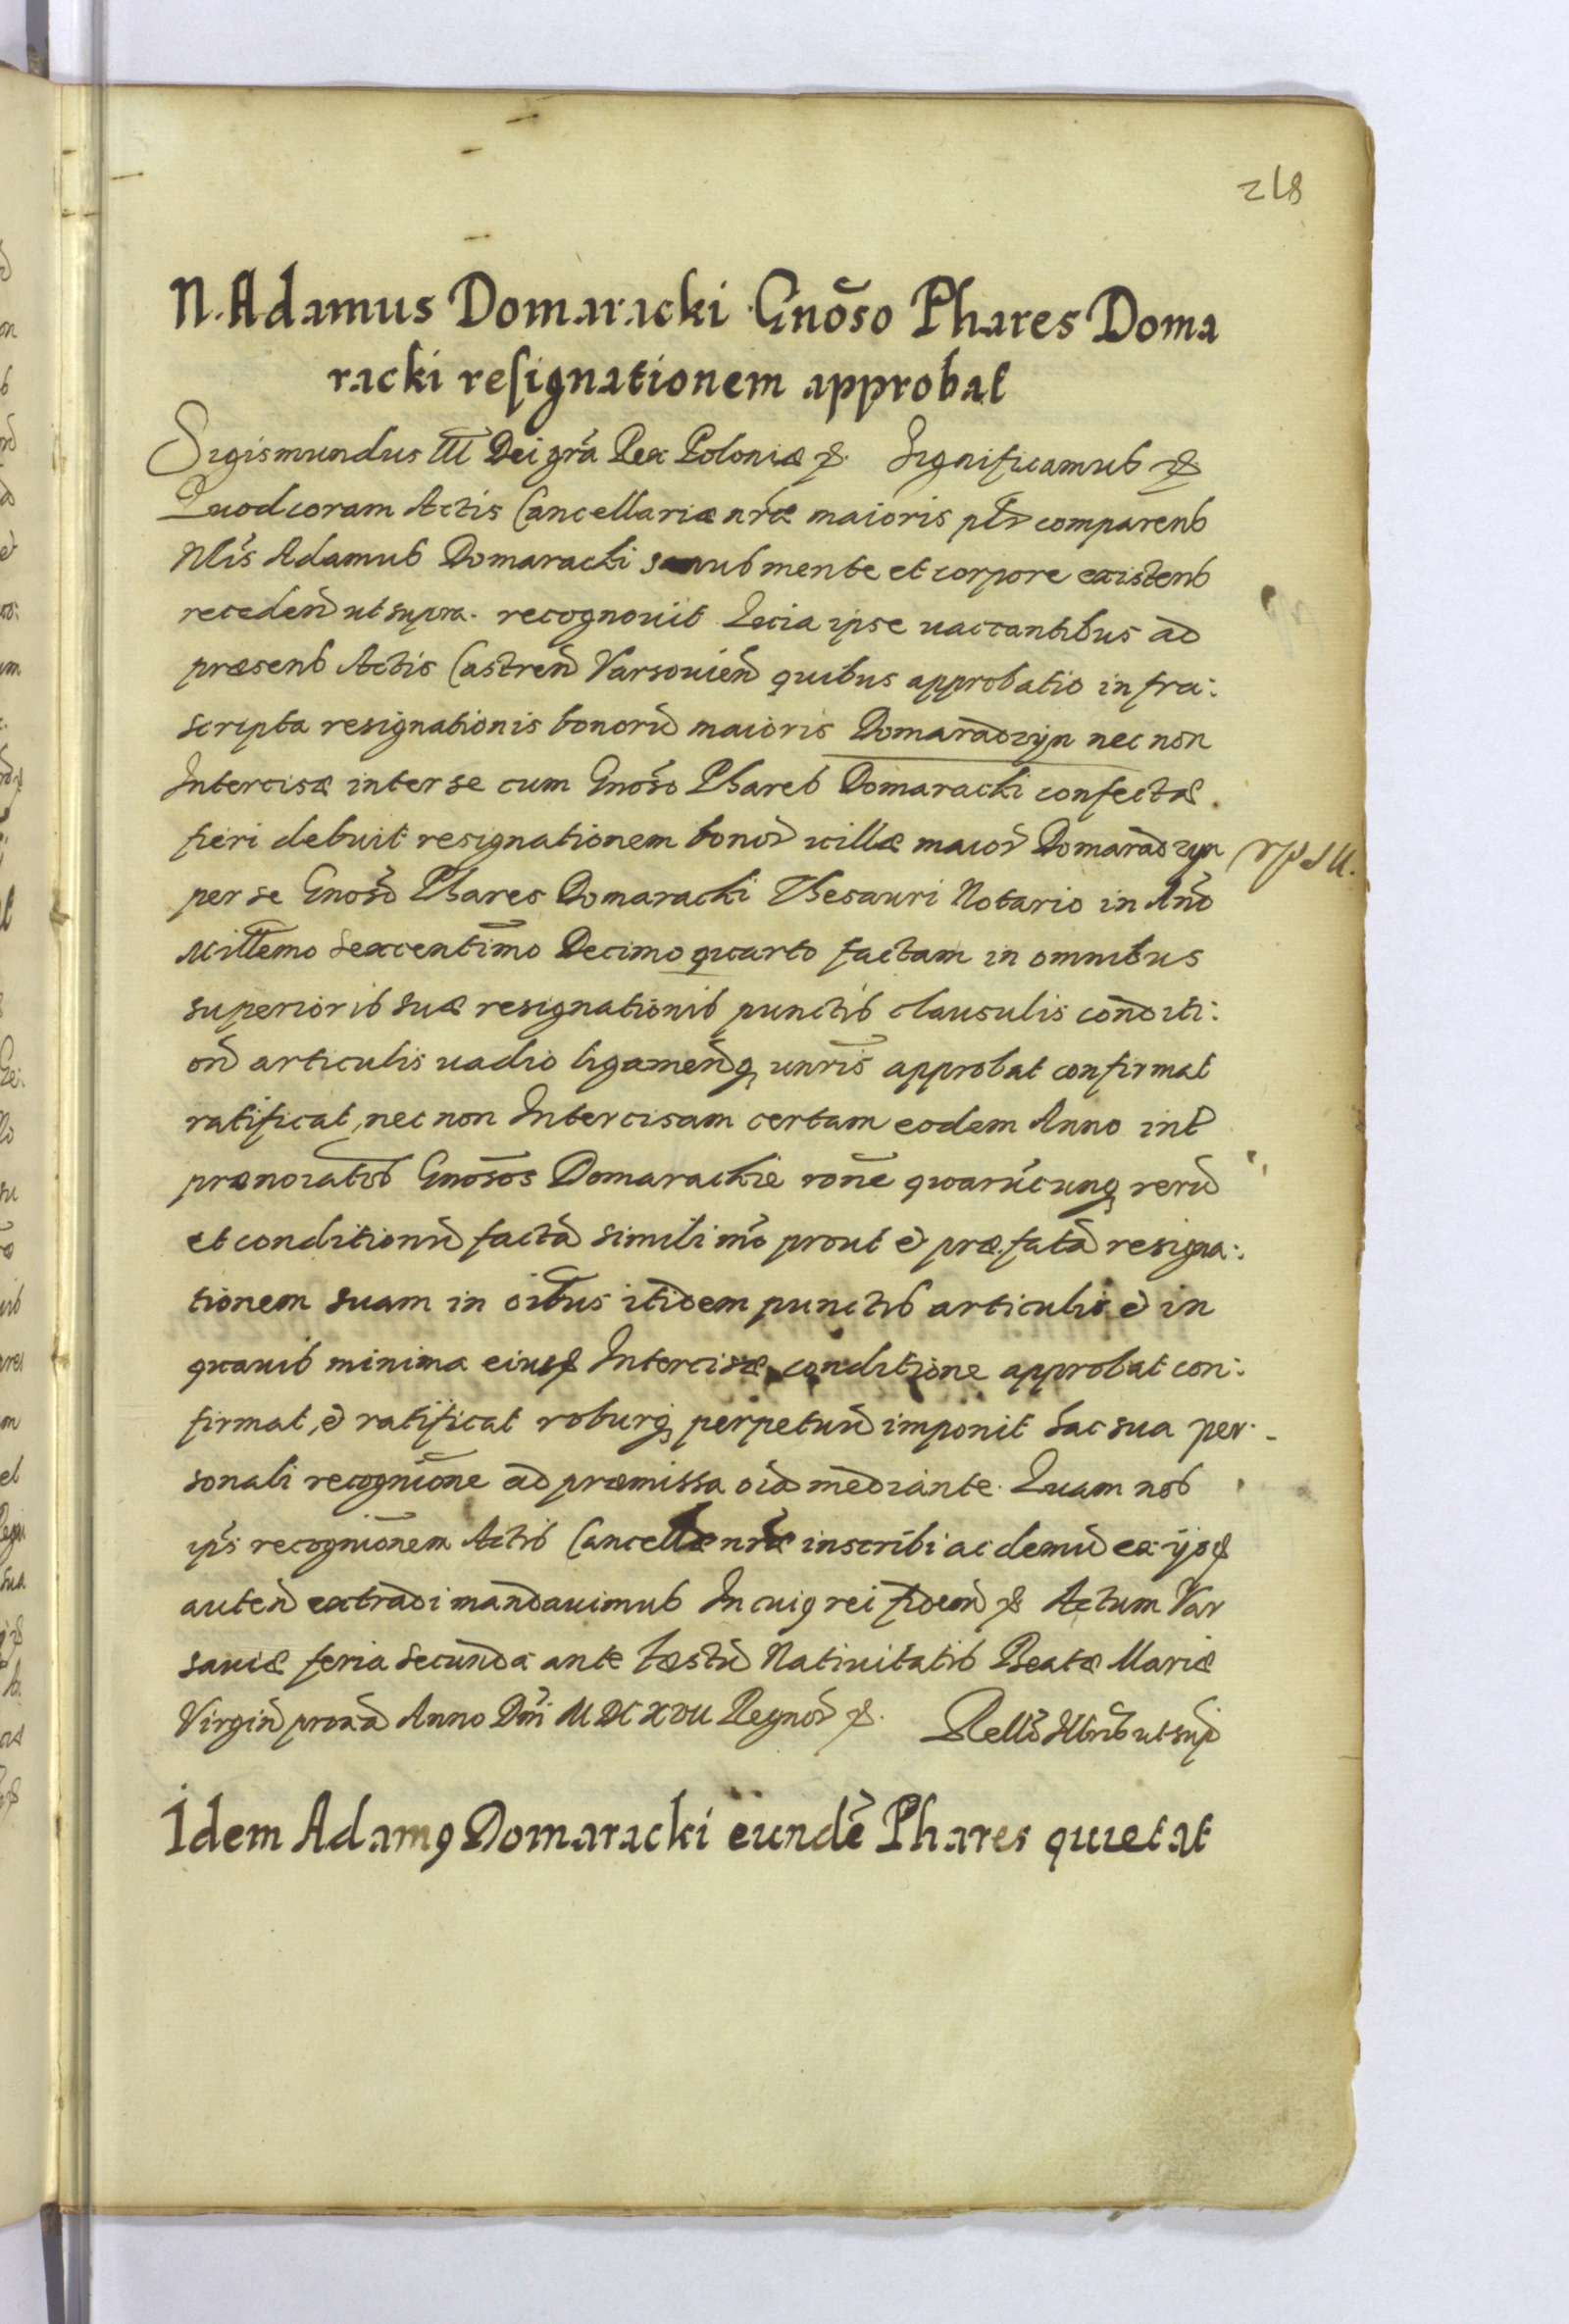 218
N. Adamus Domaracki Gnōso Phares Doma
racki resignationem approbat
Sigismundus III Dei grā Rex Poloniæ &. Significamus &
Quod coram Actis Cancellariæ nrǣ maioris plr comparens
Nlis Adamus Domaracki sanus mente et corpore existens
recedeñ ut supra. recognovit Quia ipse vaccantibus ad
præsens Actis Castreñ Varsovieñ quibus approbatio infra:
scripta resignationis bonorū maioris Domaradzyn nec non
Intercisæ inter se cum Gnōso Phares Domaracki confectæ.
fieri debuit resignationem bonor villæ maior Domaradzyn
per se Gnōso Phares Domaracki Thesauri Notario in Añō
Millēmo Sexcentīmo Decimo quarto factam in omnibus
superioris suæ resignationis punctis clausulis conditi:
oñ articulis vadio ligameñq unris approbat confirmat
ratificat, nec non Intercisam certam eodem Anno int
prænoīatos Gnōsos Domarackie rōne quarūcunq rerū
et conditionū factā simili mō prout et præfatā resigna:
tionem suam in oībus itidem punctis articulis et in
quavis minima eiusd Intercisæ conditione approbat con:
firmat, et ratificat roburq perpetuū imponit hac sua per:
sonali recognīone ad præmissa oīa mediante. Quam nos
ips recognīonem Actis Cancellæ nræ inscribi ac demū ex ijsd
auteñ extradi mandavimus In cuiq rei fidem & Actum Var
saviæ feria secunda ante Festū Nativitatis Beatæ Mariæ
Virgiñ proxā Anno Dni MDCXVII Regnor &. Rello Illris ut sup
Idem Adamq Domaracki eundē Phares quietat